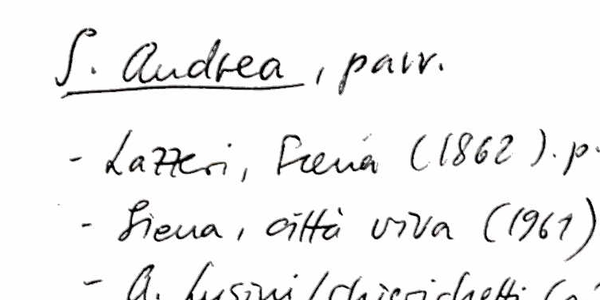 S. Andrea, parr.
- Lazzeri, Siena (1862). p.
- Siena, città viva (1961)
- A. Lusini/